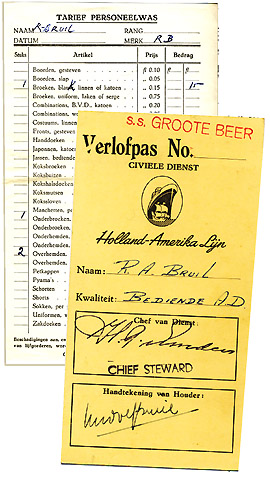 TARIEF PERSONEELWAS
NAAM R. BRUIL RANG
DATUM MERK R.B
Stuks Artikel Prijs Bedrag
Boorden, gesteven ƒ 0.10 ƒ
Boorden, slap 0.05
1 Broeken, blauw linnen of katoen 0.15 15
Broeken, uniform, laken of serge 0.75
Combinations, B.V.D., katoen 0.20
Combinations,
Costuums, linnen
Fronts, gesteven
Handdoeken
Japonnen, katoen
Jassen, bediende
Koksbroeken
Koksbuizen
Kokshalsdoeken
Koksmutsen
Kokssloven
1 Manchetten,
Onderbroeken,
Onderbroeken,
Overhemden,
Overhemden,
2 Overhemden,
Overhemden,
Petkappen
Pyama's
Schorten
Shorts
Sokken, per
Uniformen,
Zakdoeken
Beschadigingen aan
van lijfgoederen,
s.s. GROOTE BEER
Verlofpas No.
CIVIELE DIENST
Holland-Amerika Lijn
Naam: R. A. BRUIL
Kwaliteit: BEDIENDE A.D.
Chef van Dienst:
CHIEF STEWARD
Handtekening van Houder: